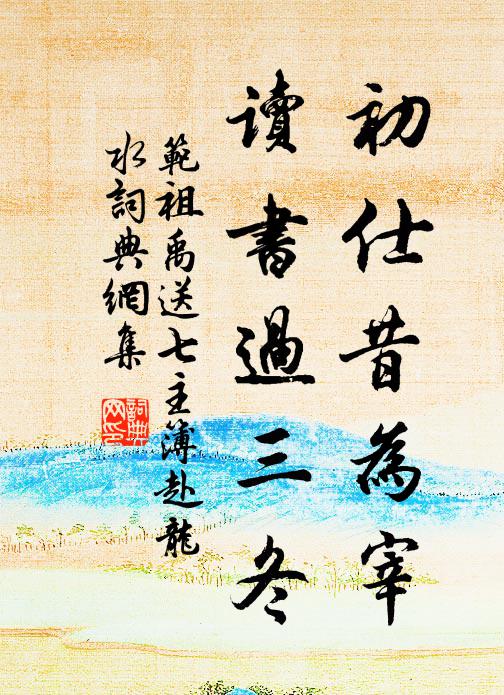 初仕昔為宰
讀書過三冬
範祖禹送七主簿赴龍
水詞典網集
詞典
网印